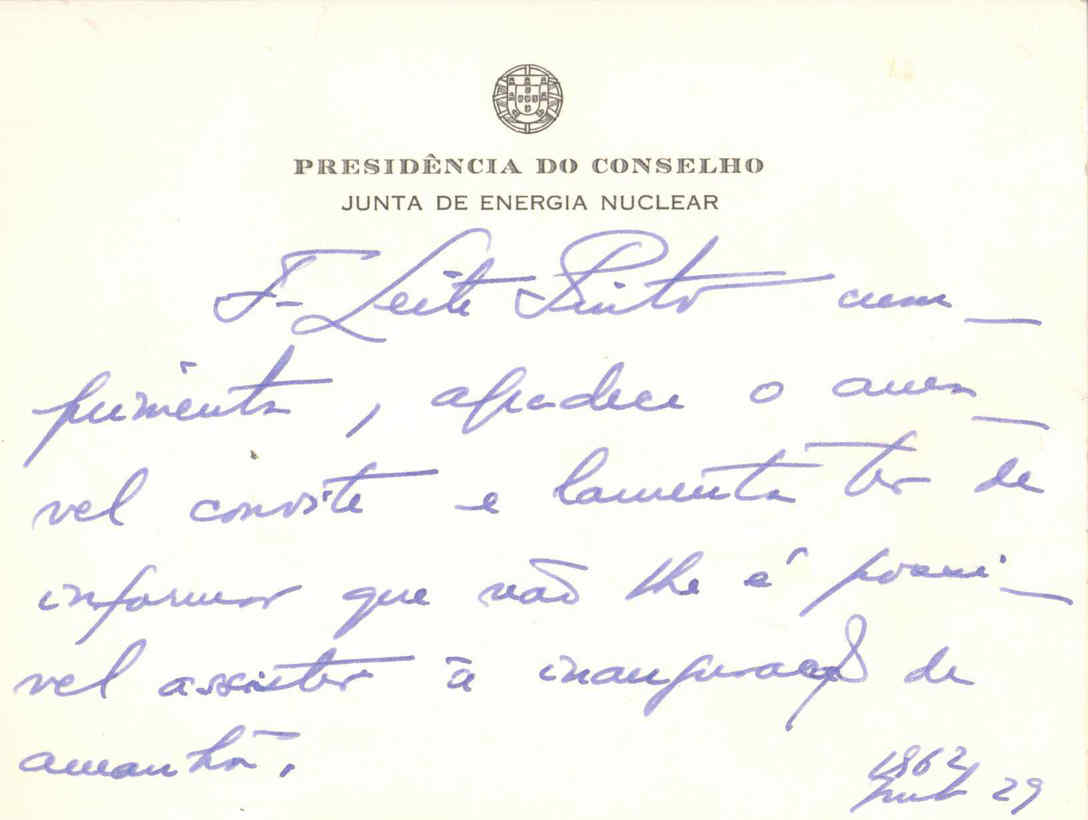 PRESIDÊNCIA DO CONSELHO
JUNTA DE ENERGIA NUCLEAR
F. Leite Pinto cum_
primenta, agradece o amá_
vel convite e lamenta ter de
informar que não lhe é possí_
vel assistir à inauguração de
amanhã.
1962
29